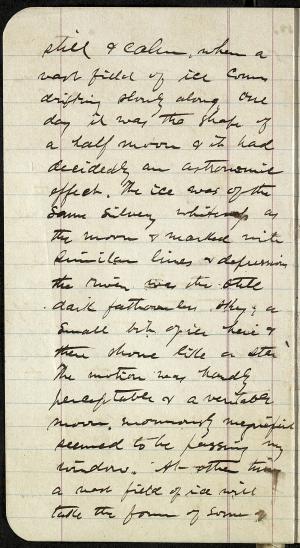 still & calm, when a
vast field of ice comes
drifting slowly along. One
day it was the shape of
a half moon & it had
decidedly an astronomic
effect. The ice was of the
same silvery whiteness as
the moon & marked with
similar lines & depressions
the river was the still
dark fathomless sky; a
small bit of ice here &
there shone like a star
The motion was hardly
perceptable & a veritable
moon, enormously magnified
seemed to be passing my
window. At other times
a vast field of ice will
take the form of some